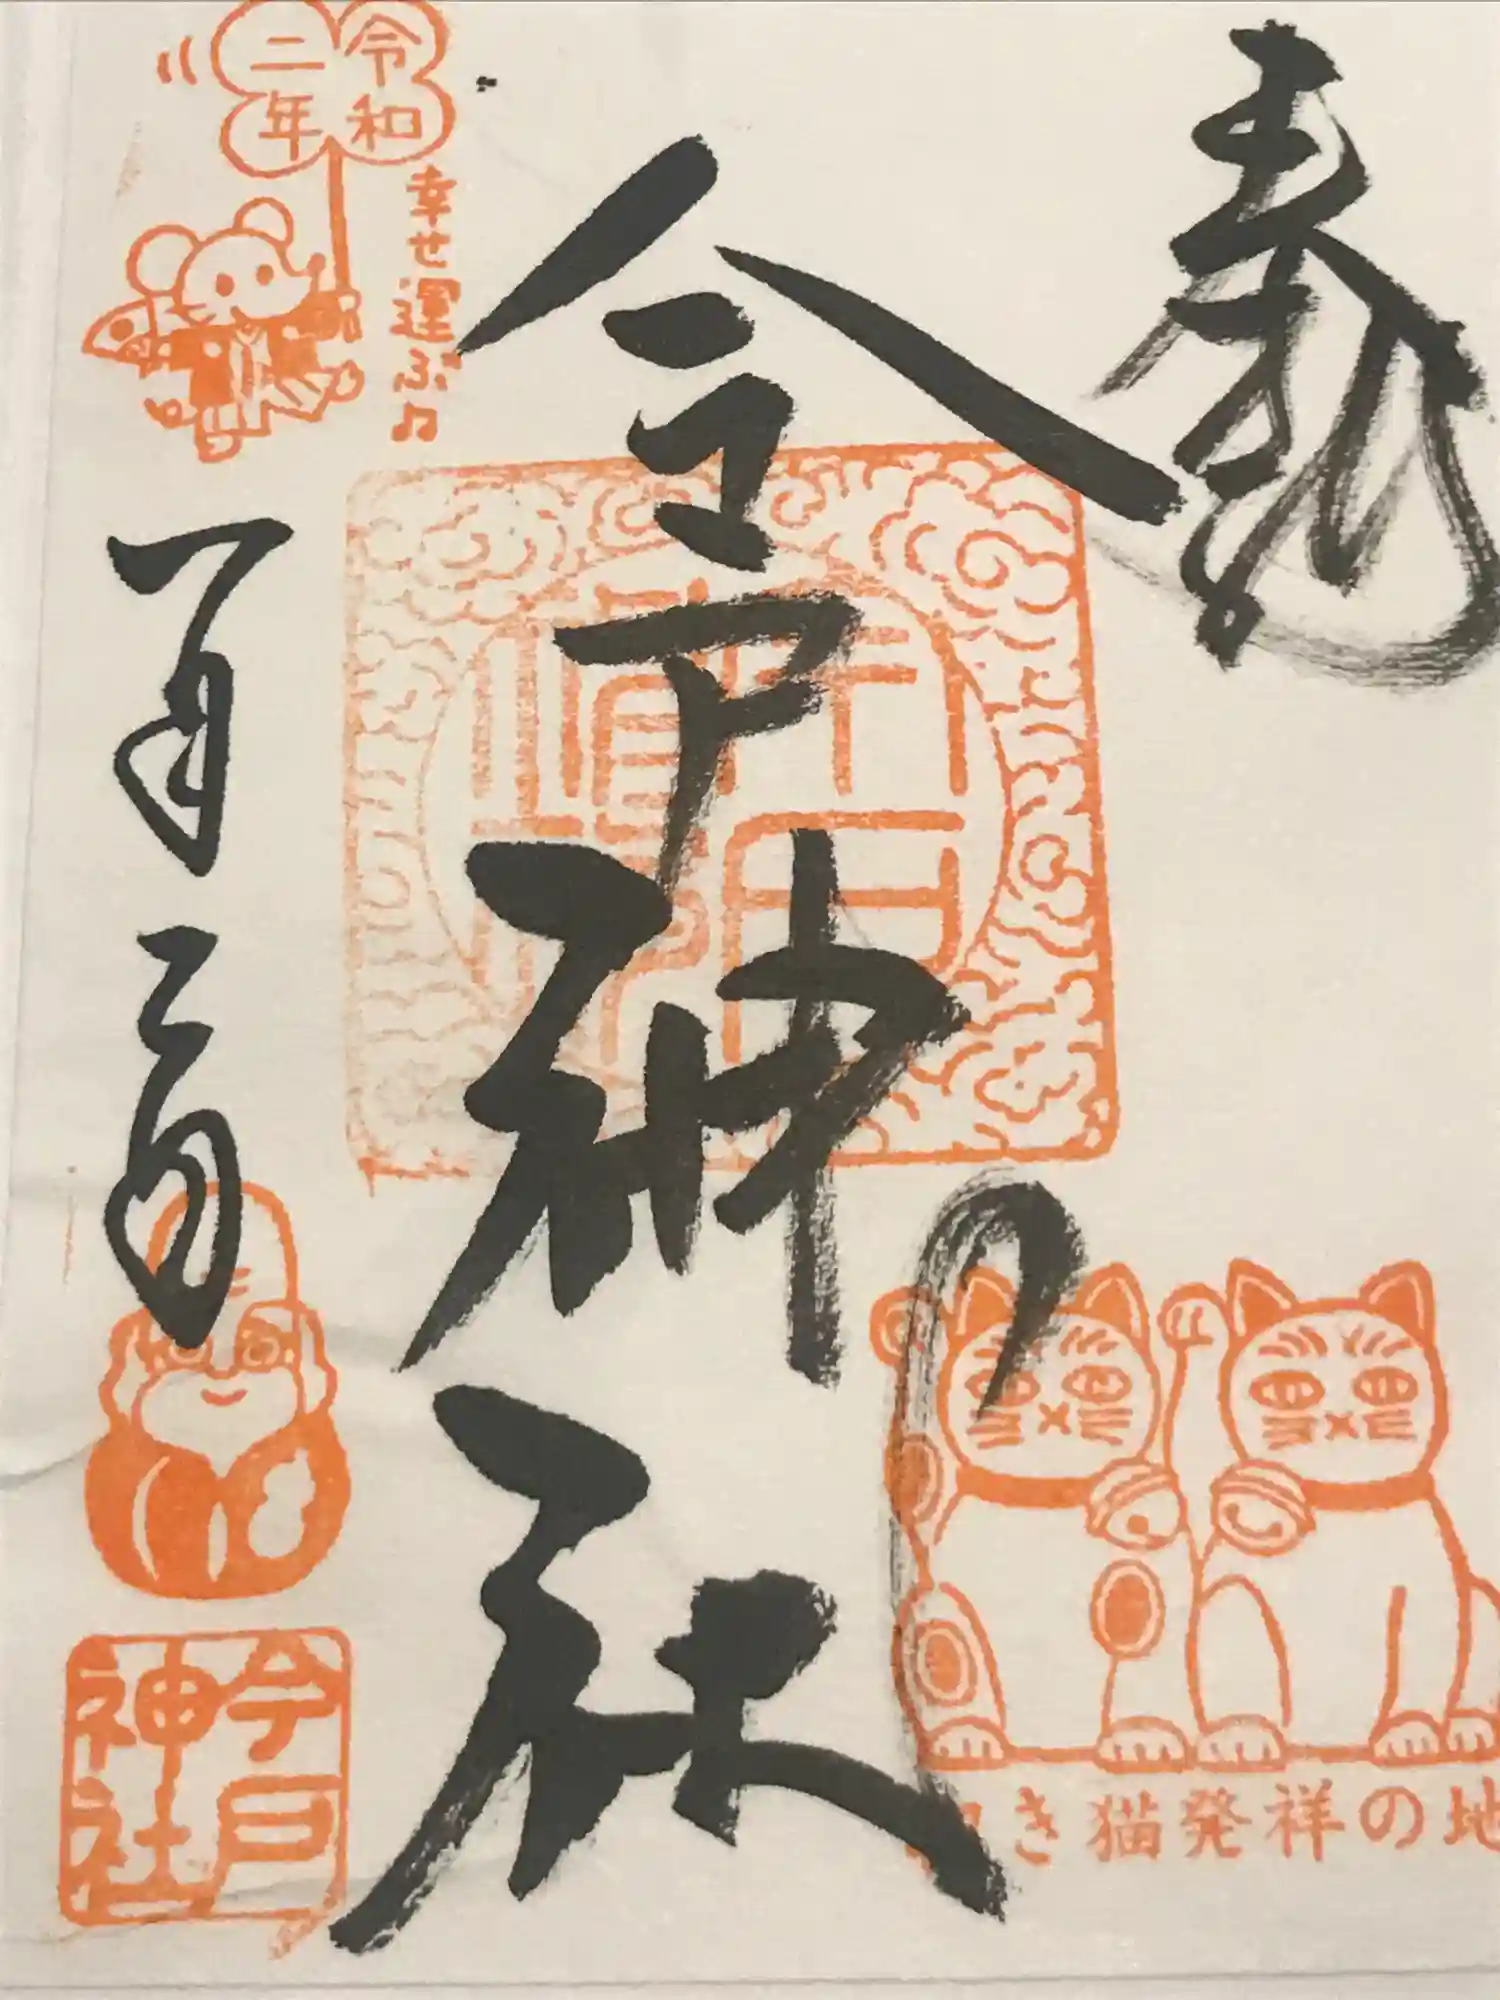 奉拝
今戸神社
一月二日
令和
二年
幸せ運ぶ♫
今戸
神社
き猫発祥の地